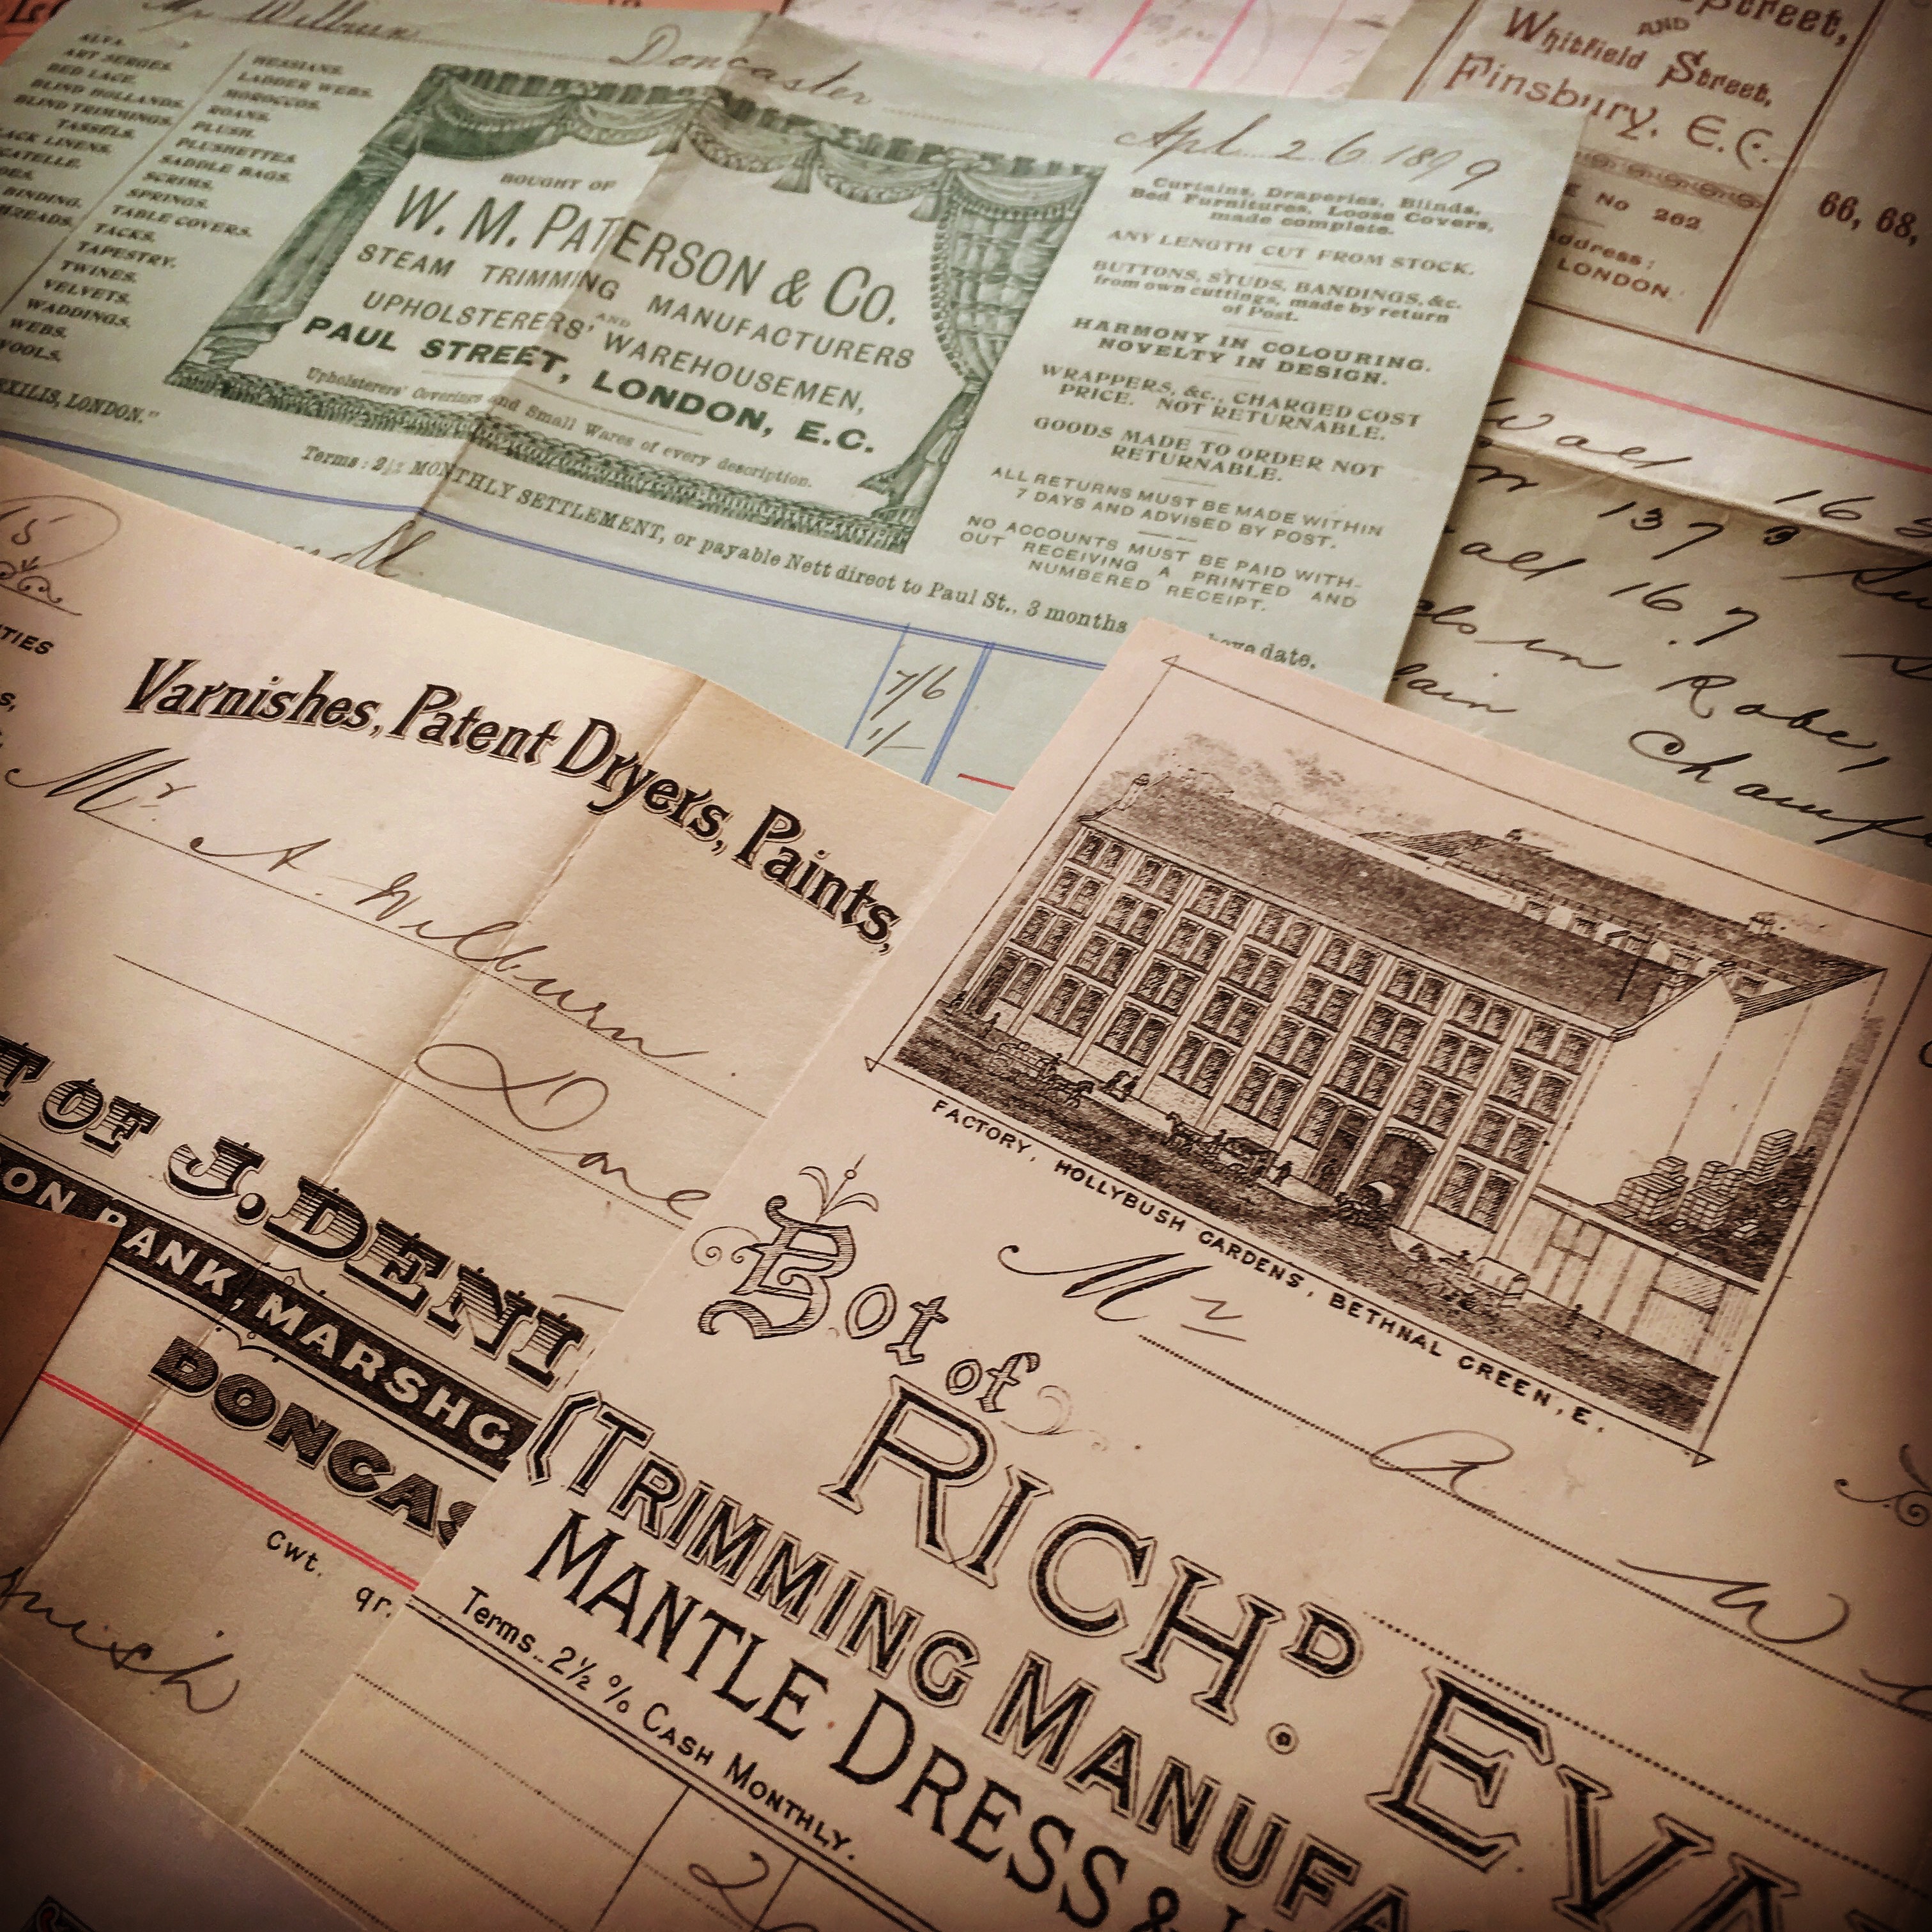 Mr Wilburn
Doncaster
Apl. 26 1899
ALVA.
ART SERGES.
BED LACE.
BLIND HOLLANDS.
BLIND TRIMMINGS.
TASSELS.
LACK LINENS.
CATELLE.
BINDING.
HREADS.
HESSIANS.
LADDER WEBS.
MOROCCOS.
ROANS.
PLUSH.
PLUSHETTES.
SADDLE BAGS.
SCRIMS.
SPRINGS.
TABLE COVERS.
TACKS.
TAPESTRY.
TWINES.
VELVETS.
WADDINGS.
WEBS.
WOOLS.
EXILIS, LONDON."
BOUGHT OF
W. M. PATERSON & CO.
STEAM TRIMMING MANUFACTURERS
AND
UPHOLSTERERS' WAREHOUSEMEN,
PAUL STREET, LONDON, E.C.
Upholsterers' Coverings and Small Wares of every description.
Terms: 2½ MONTHLY SETTLEMENT, or payable Nett direct to Paul St., 3 months above date.
Curtains, Draperies, Blinds,
Bed Furnitures, Loose Covers,
made complete.
ANY LENGTH CUT FROM STOCK.
BUTTONS, STUDS, BANDINGS, &c.
from own cuttings, made by return
of Post.
HARMONY IN COLOURING.
NOVELTY IN DESIGN.
WRAPPERS, &c., CHARGED COST
PRICE. NOT RETURNABLE.
GOODS MADE TO ORDER NOT
RETURNABLE.
ALL RETURNS MUST BE MADE WITHIN
7 DAYS AND ADVISED BY POST.
NO ACCOUNTS MUST BE PAID WITH-
OUT RECEIVING A PRINTED AND
NUMBERED RECEIPT.
7/6
1/-
Street,
AND
Whitfield Street,
Finsbury, E.C.
E No 262
Address:
LONDON.
66, 68,
Wall 163
137
all 167
Robe,
lain
Champ
15
TIES
Varnishes, Patent Dryers, Paints,
Mr. A. Wilburn
Donc
T OF J. DENI
ON BANK, MARSHG
DONCAS
Cwt. qr.
FACTORY, HOLLYBUSH GARDENS, BETHNAL GREEN, E.
Bot of
Mr
A W
RICHD. EVA
(TRIMMING MANUFA
MANTLE DRESS &
Terms.. 2½ % CASH MONTHLY.
2